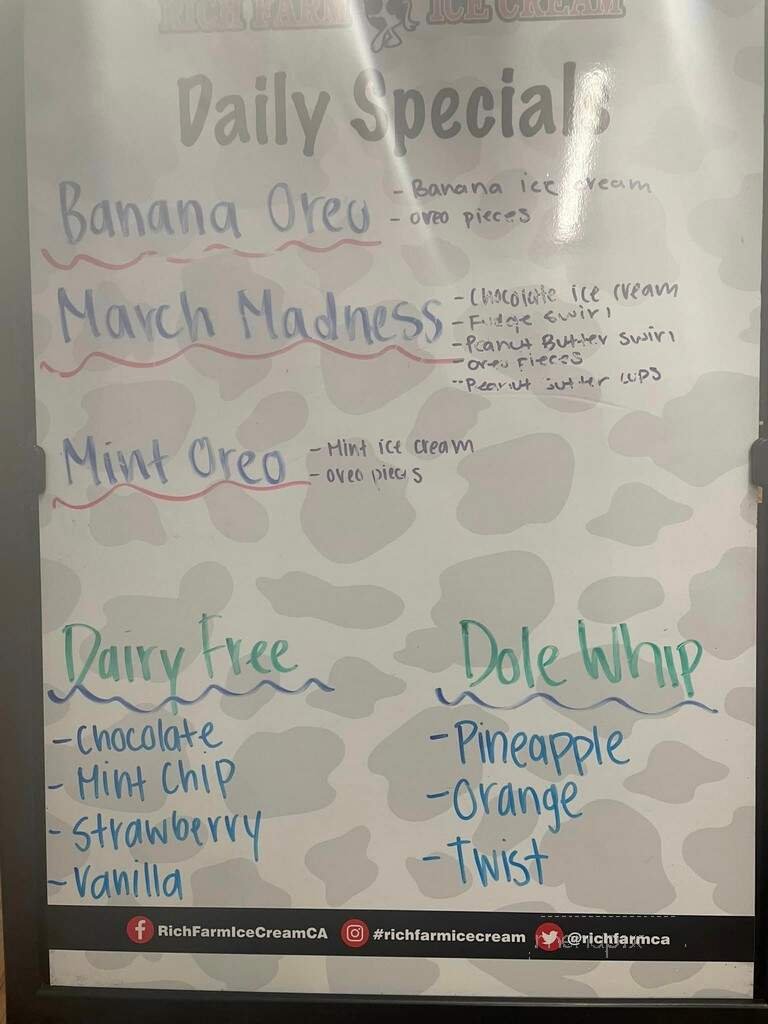 RICH FARM ICE CREAM
Daily Specials
Banana Oreo
- Banana ice cream
- oreo pieces
March Madness
- Chocolate ice cream
- Fudge swirl
- Peanut Butter swirl
- oreo pieces
- Peanut butter cups
Mint Oreo
- Mint ice cream
- oreo pieces
Dairy Free
- Chocolate
- Mint Chip
- Strawberry
- Vanilla
Dole Whip
- Pineapple
- Orange
- Twist
RichFarmIceCreamCA #richfarmicecream @richfarmca